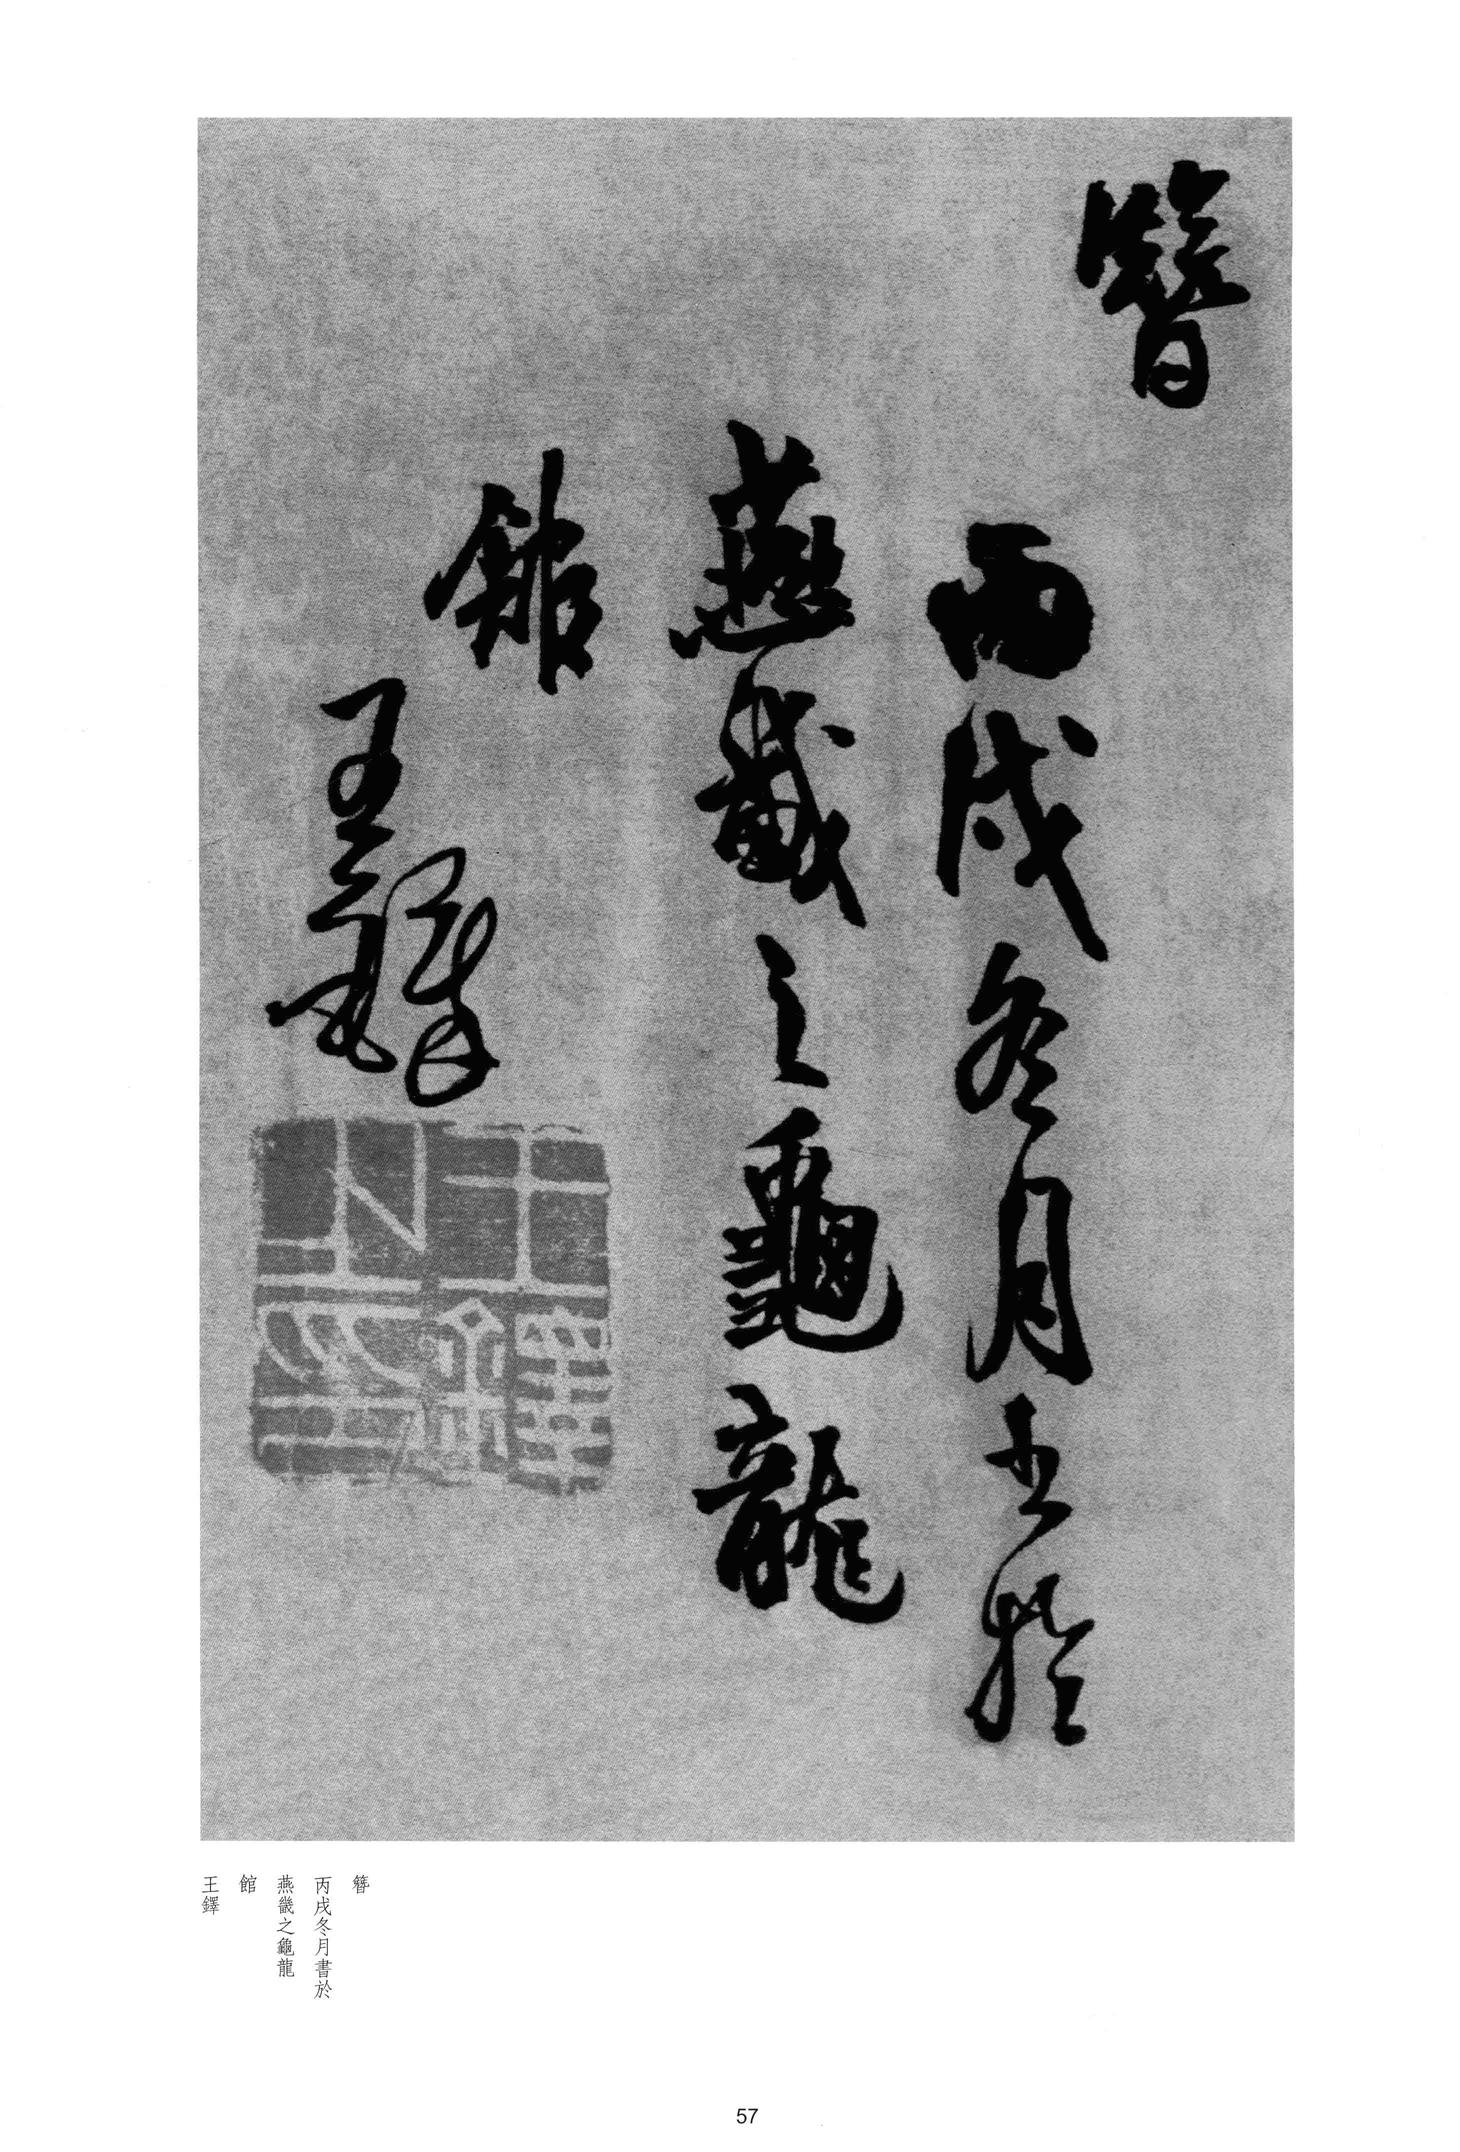 簪
丙戌冬月書於
燕畿之龜龍
館
王鐸
簪
丙戌冬月書於
燕畿之龜龍
館
王鐸
57